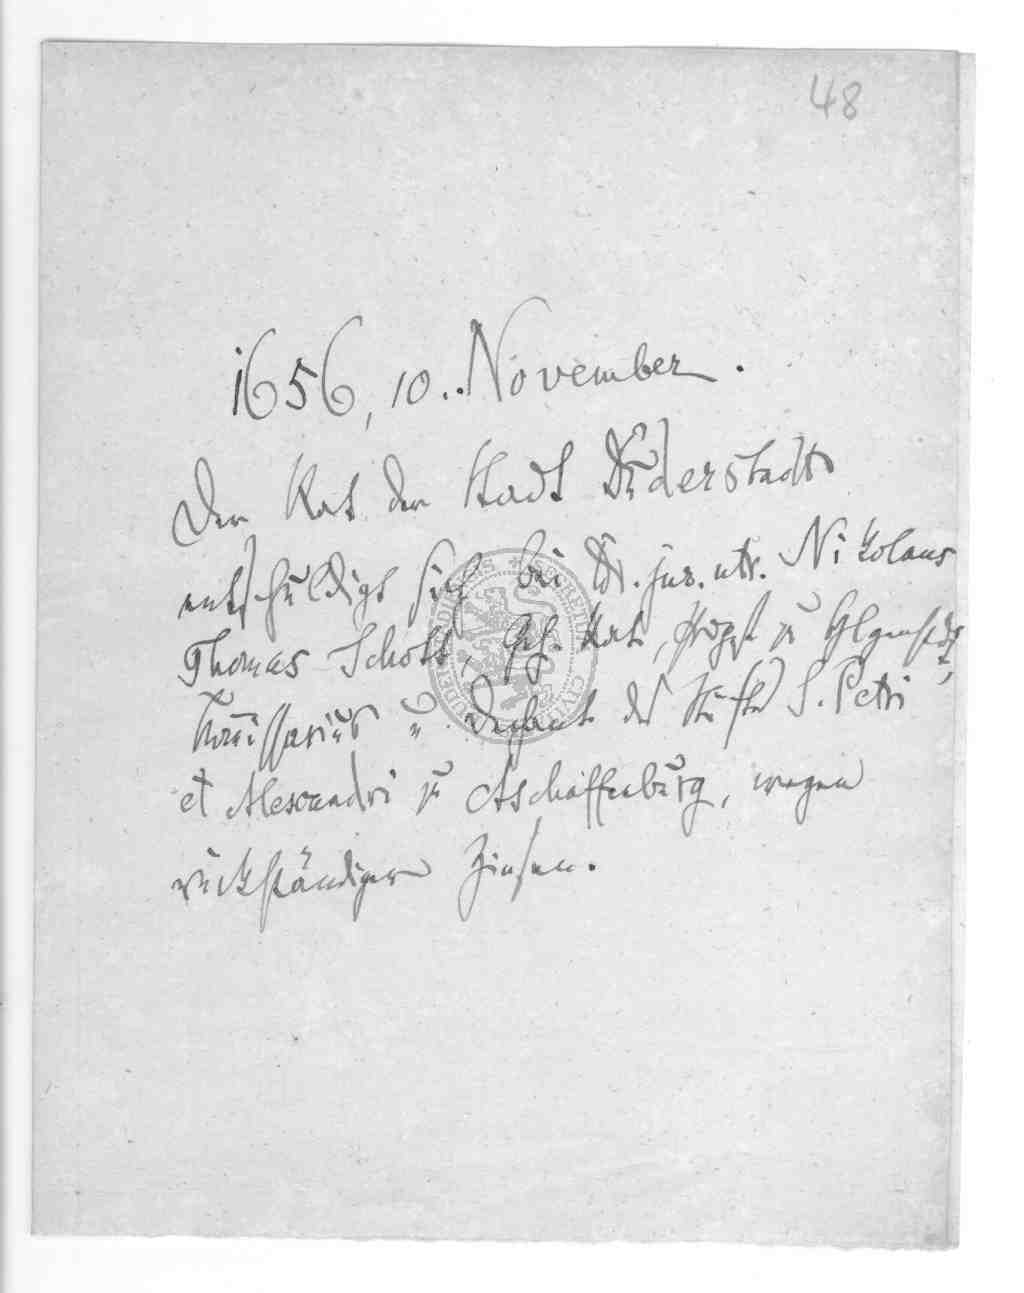 48
1656, 10. November.
Der Rat der Stadt Duderstadt
entschuldigt sich bei Dr. jur. utr. Nikolaus
Thomas Schott, Geh. Rat, Propst zu
Kom̄issarius u. Dechant des Stifts S. Petri
et Alexandri zu Aschaffenburg, wegen
rückständiger Zinsen.